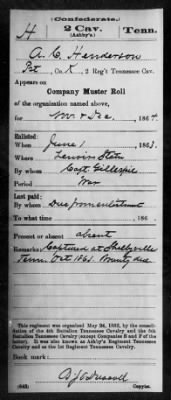 (Confederate.)
H 2 Cav. Tenn.
(Ashby's)
A. C. Henderson
Pvt, Co. K, 2 Reg't Tennessee Cav.
Appears on
Company Muster Roll
of the organization named above,
for Nov & Dec, 1864.
Enlisted:
When June 1, 1863.
Where Lenoirs Statn
By whom Capt. Gillespie
Period War
Last paid:
By whom Due from enlistment
To what time , 186 .
Present or absent absent
Remarks: Captured at Shelbyville
Tenn. Oct. 1863. Bounty due
This regiment was organized May 24, 1862, by the consolidation of the 4th Battalion Tennessee Cavalry and the 5th Battalion Tennessee Cavalry (except Companies B and F of the latter). It was also known as Ashby's Regiment Tennessee Cavalry and as the 1st Regiment Tennessee Cavalry.
Book mark:
(642) Copyist.